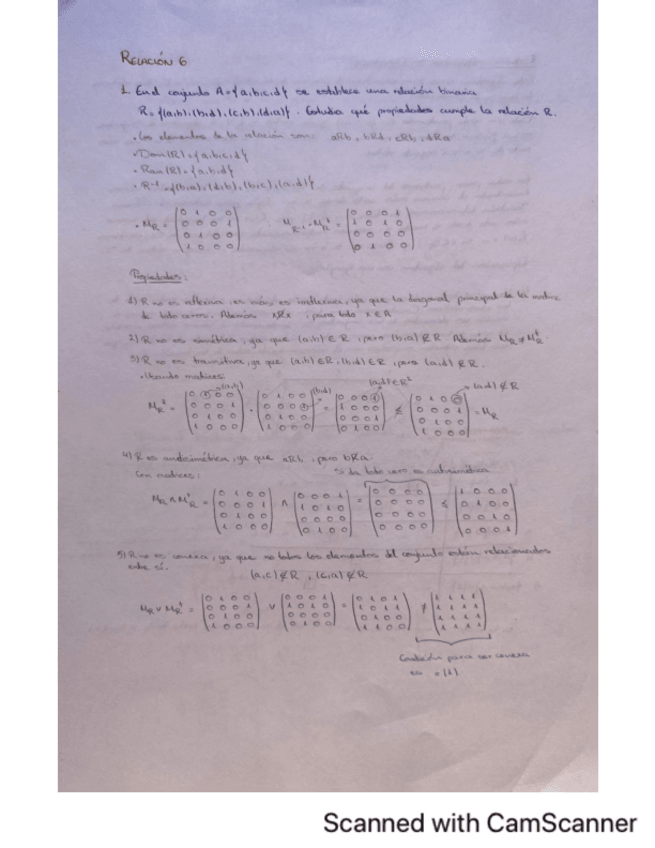 RELACIÓN 6
1. En el conjunto A={a,b,c,d} se establece una relación binaria
R={(a,b),(b,d),(c,b),(d,a)}. Estudia qué propiedades cumple la relación R.
· Los elementos de la relación son: aRb, bRd, cRb, dRa
· Dom(R)={a,b,c,d}
· Ran(R)={a,b,d}
· R⁻¹={(b,a),(d,b),(b,c),(a,d)}
· M_R = (0 1 0 0 / 0 0 0 1 / 0 1 0 0 / 1 0 0 0) M_R⁻¹ = M_R^t = (0 0 0 1 / 1 0 1 0 / 0 0 0 0 / 0 1 0 0)
Propiedades:
1) R no es reflexiva, es más, es irreflexiva, ya que la diagonal principal de la matriz
da todo ceros. Además xRx, para todo x∈A
2) R no es simétrica, ya que (a,b)∈R, pero (b,a)∉R. Además M_R≠M_R^t
3) R no es transitiva, ya que (a,b)∈R, (b,d)∈R, pero (a,d)∉R.
· Usando matrices:
(a,b) (b,d) (a,d)∈R² (a,d)∉R
M_R² = (0 1 0 0 / 0 0 0 1 / 0 1 0 0 / 1 0 0 0) · (0 1 0 0 / 0 0 0 1 / 0 1 0 0 / 1 0 0 0) = ≰ (0 1 0 0 / 0 0 0 1 / 0 1 0 0 / 1 0 0 0) = M_R
4) R es antisimétrica, ya que aRb, pero bRa.
Con matrices: Si da todo cero es antisimétrica
M_R ∧ M_R^t = (0 1 0 0 / 0 0 0 1 / 0 1 0 0 / 1 0 0 0) ∧ (0 0 0 1 / 1 0 1 0 / 0 0 0 0 / 0 1 0 0) = (0 0 0 0 / 0 0 0 0 / 0 0 0 0 / 0 0 0 0) ≤ (1 0 0 0 / 0 1 0 0 / 0 0 1 0 / 0 0 0 1)
5) R no es conexa, ya que no todos los elementos del conjunto están relacionados
entre sí.
(a,c)∉R, (c,a)∉R
M_R ∨ M_R^t = (0 1 0 0 / 0 0 0 1 / 0 1 0 0 / 1 0 0 0) ∨ (0 0 0 1 / 1 0 1 0 / 0 0 0 0 / 0 1 0 0) = (0 1 0 1 / 1 0 1 1 / 0 1 0 0 / 1 1 0 0) ≠ (1 1 1 1 / 1 1 1 1 / 1 1 1 1 / 1 1 1 1)
Condición para ser conexa
es =(1)
Scanned with CamScanner